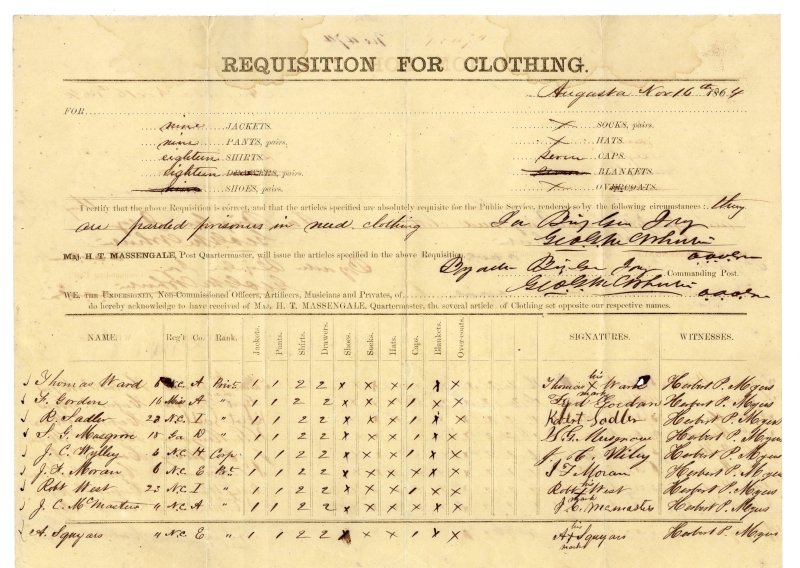 REQUISITION FOR CLOTHING.
Augusta Nov 16th 1864
FOR
nine JACKETS.
nine PANTS, pairs.
eighteen SHIRTS.
eighteen DRAWERS, pairs.
SHOES, pairs.
x SOCKS, pairs.
x HATS.
seven CAPS.
BLANKETS.
x OVERCOATS.
I certify that the above Requisition is correct, and that the articles specified are absolutely requisite for the Public Service, rendered so by the following circumstances: they
are paroled prisoners in need clothing
Maj. H. T. MASSENGALE, Post Quartermaster, will issue the articles specified in the above Requisition.
By order
Commanding Post.
WE, THE UNDERSIGNED, Non-Commissioned Officers, Artificers, Musicians and Privates, of
do hereby acknowledge to have received of Maj. H. T. MASSENGALE, Quartermaster, the several articles of Clothing set opposite our respective names.
NAME. Reg't Co. Rank. Jackets. Pants. Shirts. Drawers. Shoes. Socks. Hats. Caps. Blankets. Over-coats. SIGNATURES. WITNESSES.
Thomas Ward N.C. A Priv. 1 1 2 2 x x x 1 x x Thomas his x mark Ward Herbert P. Myers
F. Gordon 16 Miss A " 1 1 2 2 x x x 1 x x Gordon Herbert P. Myers
R. Sadler 23 N.C. I " 1 1 2 2 x x x 1 x x Robert Sadler Herbert P. Myers
18 Ga D " 1 1 2 2 x x x 1 x x Herbert P. Myers
J. C. Wylley 6 N.C. H Corp 1 1 2 2 x x x 1 x x J. C. Herbert P. Myers
J. F. Moran 6 N.C. E Priv. 1 1 2 2 x x x x x x J F Moran Herbert P. Myers
Robt West 23 N.C. I " 1 1 2 2 x x x 1 x x Robt his x mark West Herbert P. Myers
J. C. McMasters " N.C. A " 1 1 2 2 x x x x x x J. C. McMasters Herbert P. Myers
A. Squyars " N.C. E " 1 1 2 2 x x x 1 x x A his x mark Squyars Herbert P. Myers